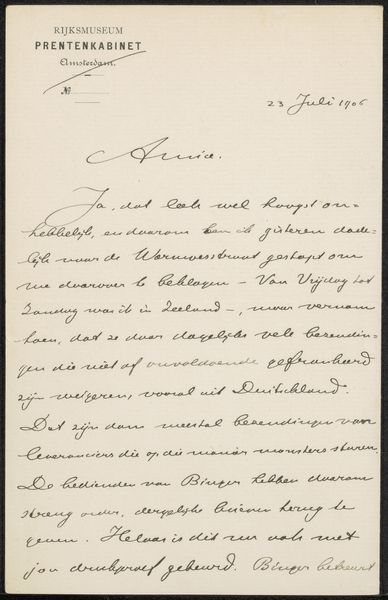 RIJKSMUSEUM
PRENTENKABINET
Amsterdam.
No
23 Juli 1906
Amice.
Ja, dat leek wel hoogst on=
hebbelijk, en daarom ben ik gisteren dade=
lijk naar de Warmoesstraat gestapt om
me daarover te beklagen – Van Vrijdag tot
Zondag was ik in Zeeland –, maar vernam
toen, dat ze daar dagelijks vele bezendin=
gen die niet of onvoldoende gefrankeerd
zijn weigeren, vooral uit Duitschland.
Dat zijn dan meestal bezendingen van
leveranciers die op die manier monsters sturen.
De bedienden van Binger hebben daarom
streng order, dergelijke brieven terug te
geven. Helaas is dit nu ook met
jou drukproef gebeurd. Binger betreurt